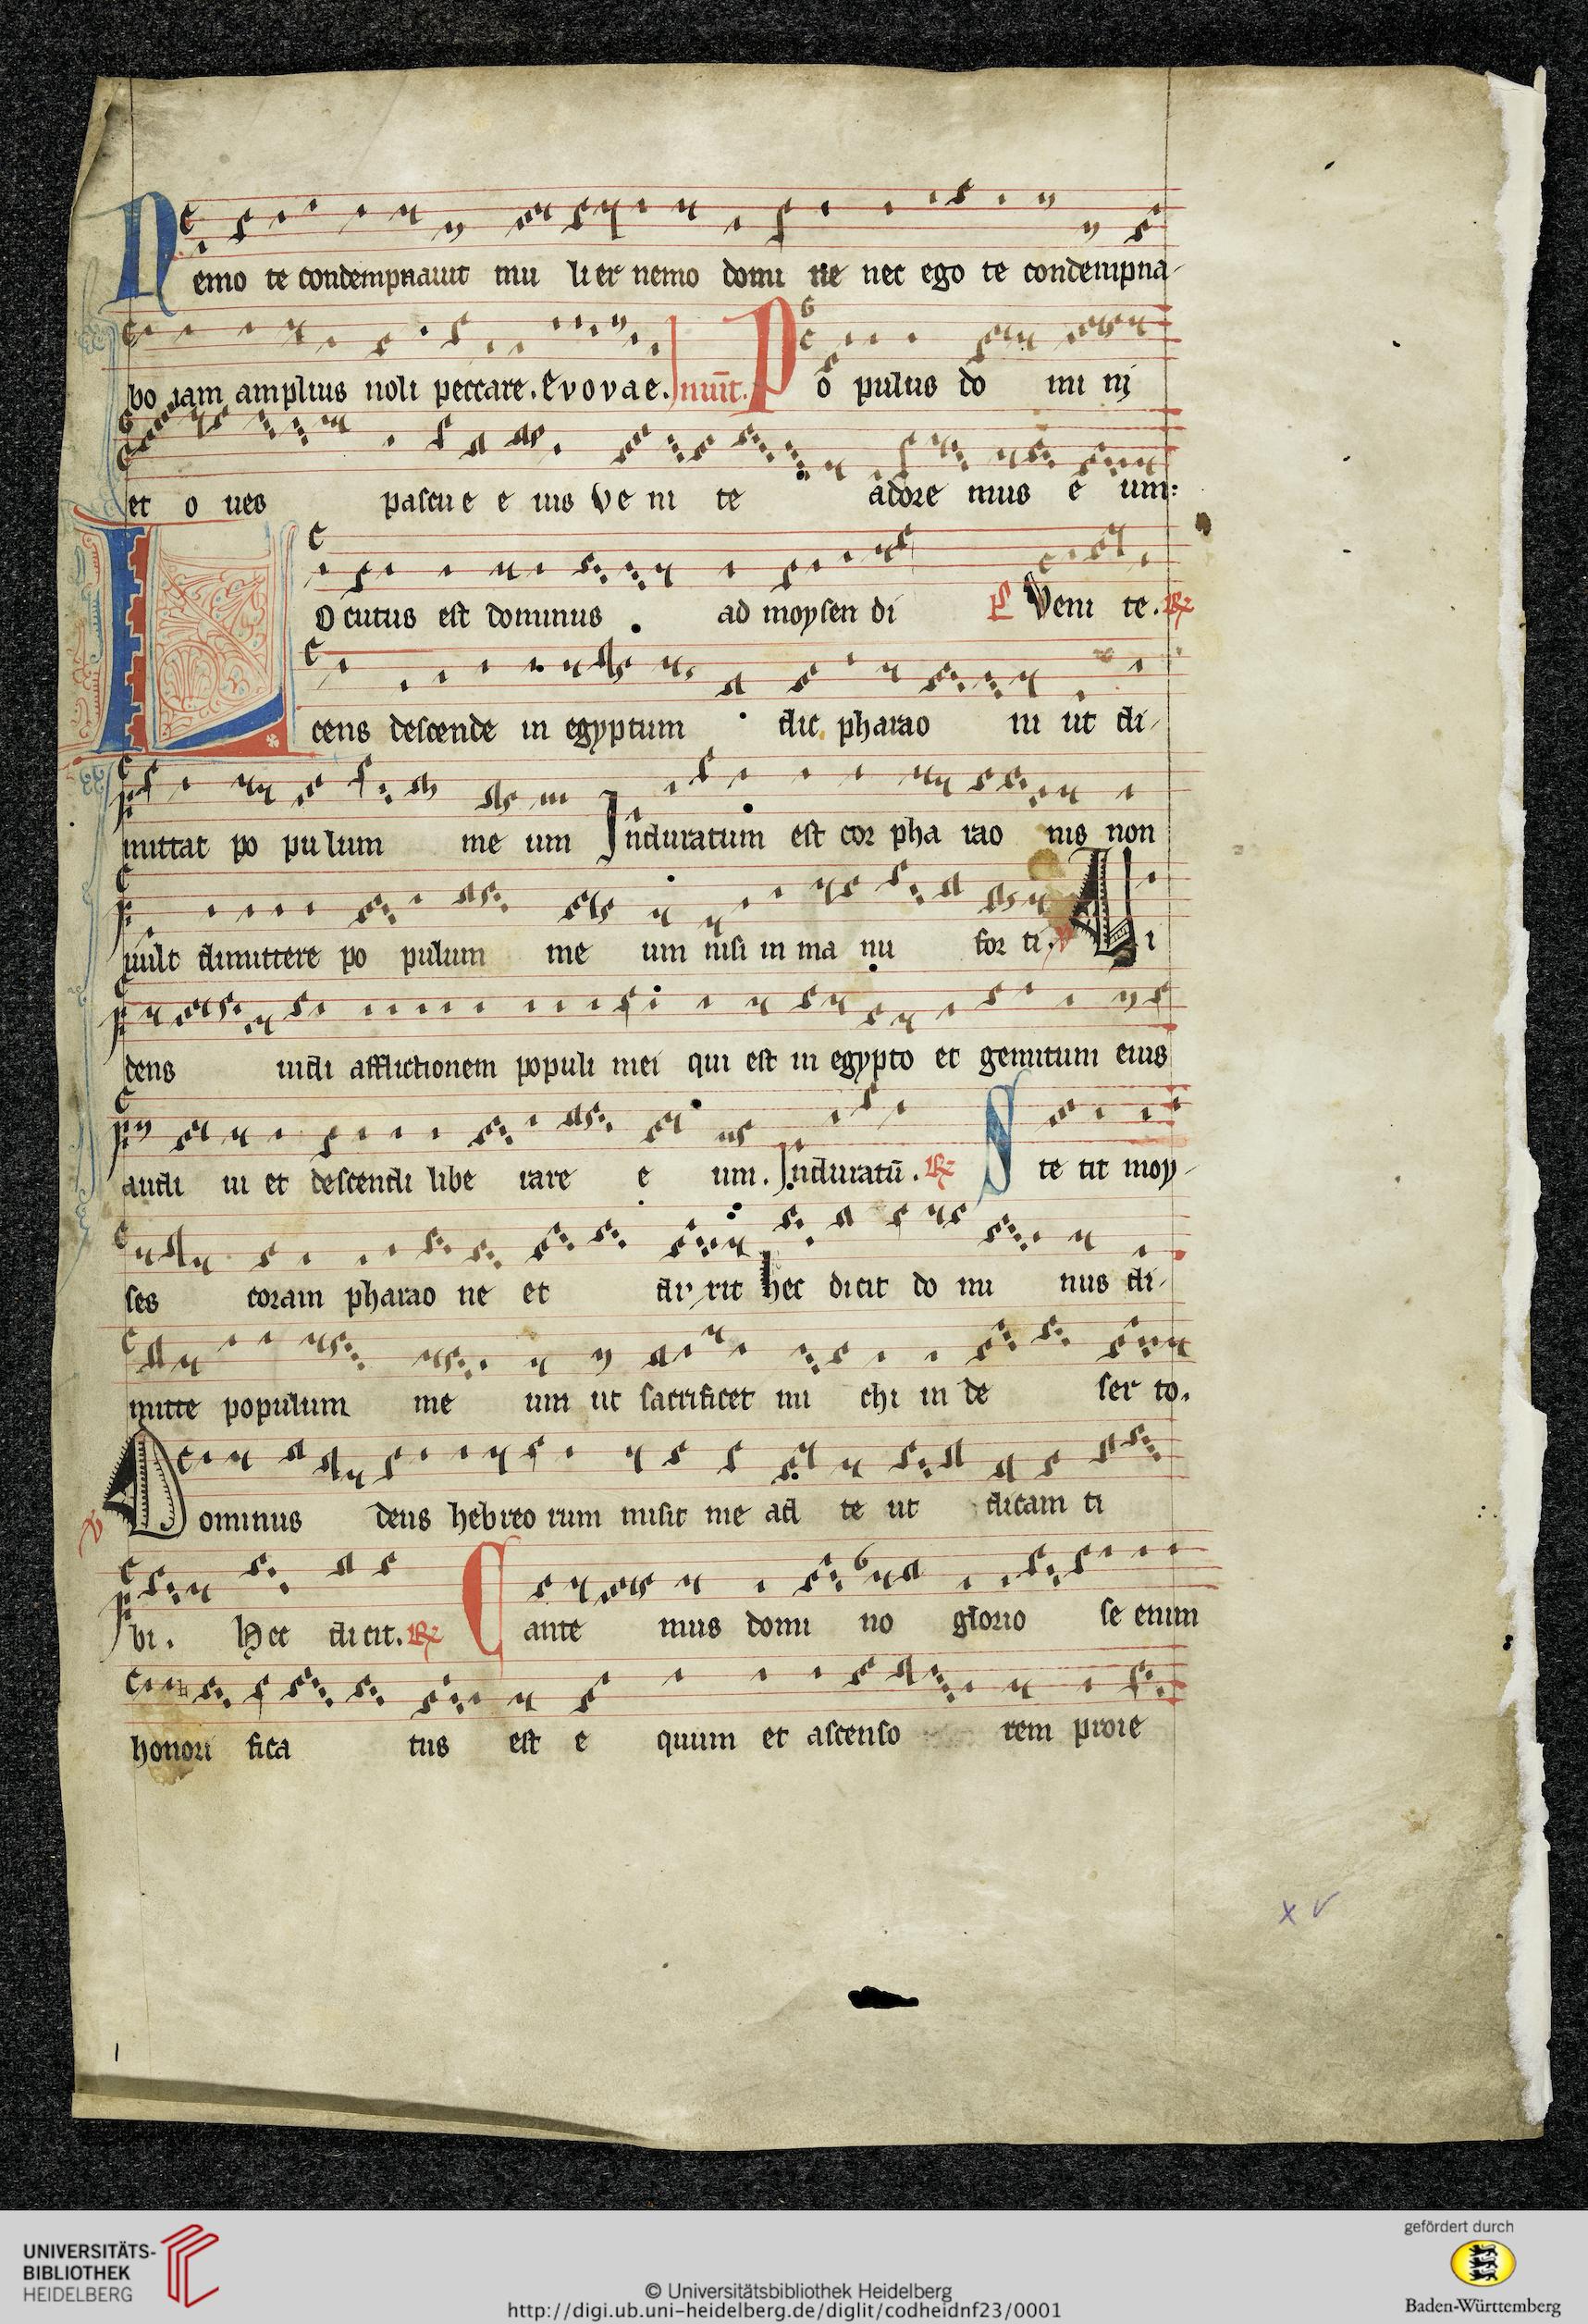 Nemo te condempnauit mu lier nemo domi ne nec ego te condempna-
bo iam amplius noli peccare. Evovae. Inuit. Po pulus do mi nj
et o ues pascu e e ius Ve ni te adore mus e um:
Locutus est dominus ad moysen di Veni te.
cens descende in egyptum dic pharao ni ut di-
mittat po pu lum me um Induratum est cor pha rao nis non
uult dimittere po pulum me um nisi in ma nu for ti. Ui
dens uidi afflictionem populi mei qui est in egypto et gemitum eius
audi ui et descendi libe rare e um. Induratū. Ste tit moy-
ses coram pharao ne et di xit hec dicit do mi nus di-
mitte populum me um ut sacrificet mi chi in de ser to.
Dominus deus hebreo rum misit me ad te ut dicam ti
bi. Hec dicit. Cante mus domi no glorio se enim
honori fica tus est e quum et ascenso rem proie
x v
UNIVERSITÄTS-
BIBLIOTHEK
HEIDELBERG
© Universitätsbibliothek Heidelberg
http://digi.ub.uni-heidelberg.de/diglit/codheidnf23/0001
gefördert durch
Baden-Württemberg